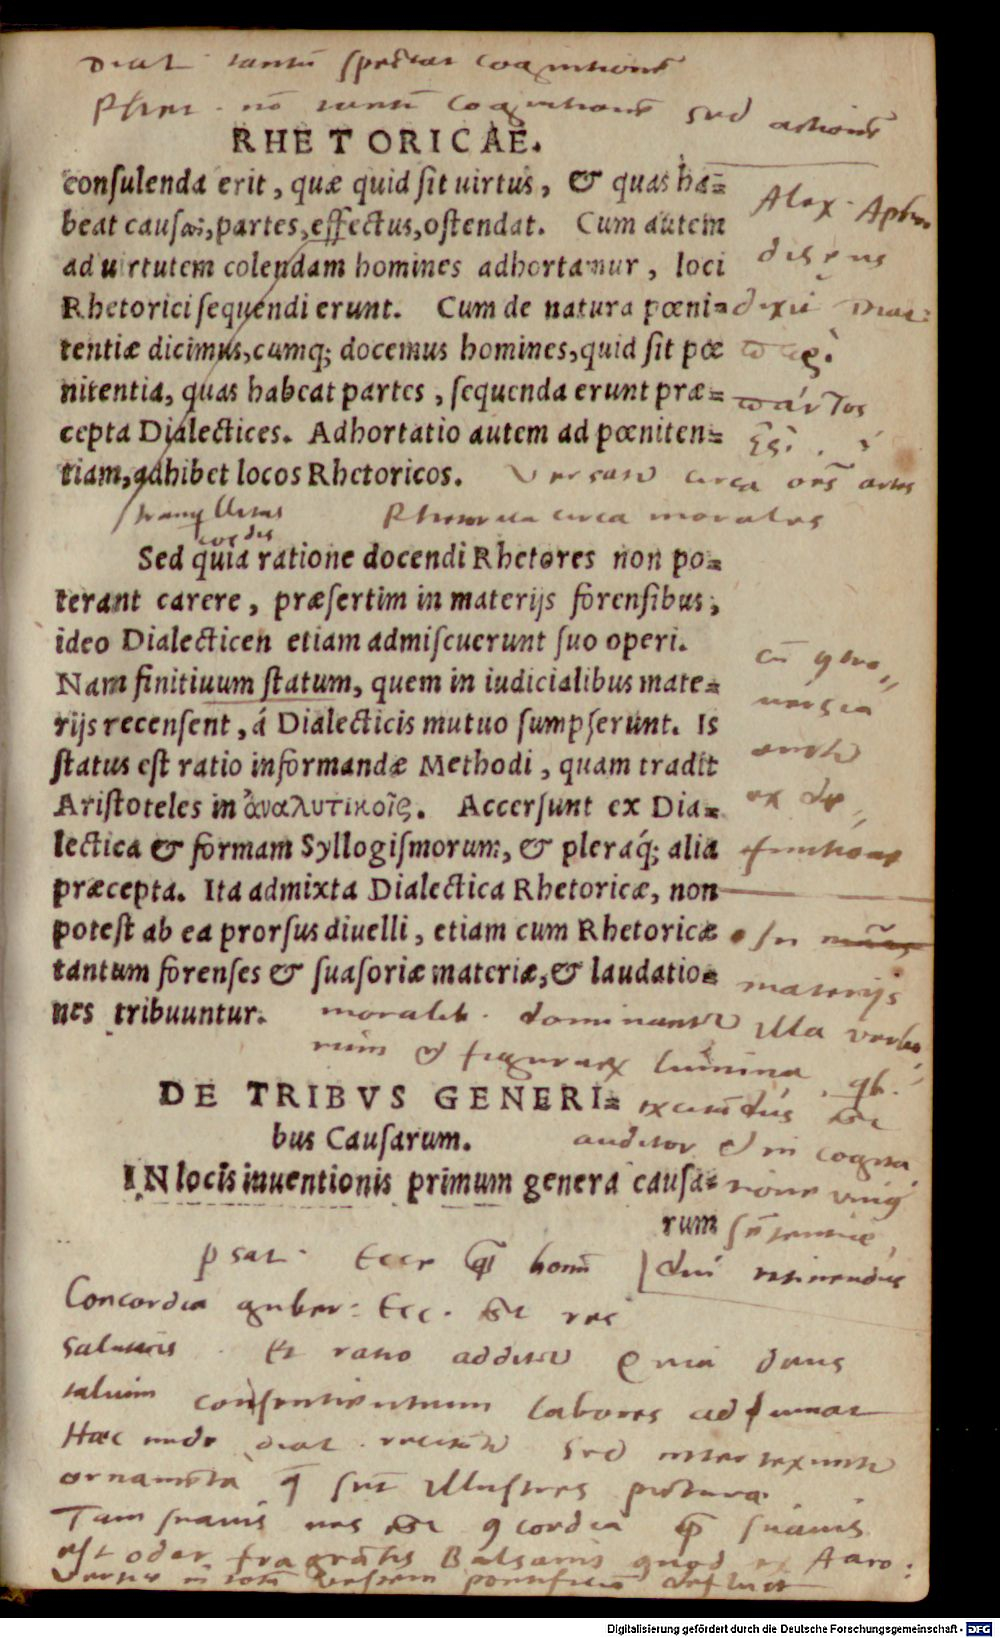 Dial: tantū spectat cognitionē
Rhet. nō tantū cognitionē sed actionē
RHETORICAE.
consulenda erit, quæ quid sit uirtus, & quas ha-
beat causas, partes, effectus, ostendat. Cum autem
ad uirtutem colendam homines adhortamur, loci
Rhetorici sequendi erunt. Cum de natura pœni-
tentiæ dicimus, cumq; docemus homines, quid sit pœ
nitentia, quas habeat partes, sequenda erunt præ-
cepta Dialectices. Adhortatio autem ad pœniten-
tiam, adhibet locos Rhetoricos.
Alex. Aphro
disęus
dixit
Versatur circa oēs artes
Rhetorica circa morales
tranquillitas
cordis
Sed quia ratione docendi Rhetores non po-
terant carere, præsertim in materijs forensibus,
ideo Dialecticen etiam admiscuerunt suo operi.
Nam finitiuum statum, quem in iudicialibus mate-
rijs recensent, á Dialecticis mutuo sumpserunt. Is
status est ratio informandæ Methodi, quam tradit
Aristoteles in ἀναλυτικοῖς. Accersunt ex Dia-
lectica & formam Syllogismorum, & pleraq́; alia
præcepta. Ita admixta Dialectica Rhetoricæ, non
potest ab ea prorsus diuelli, etiam cum Rhetoricæ
tantum forenses & suasoriæ materiæ, & laudatio-
nes tribuuntur.
ex de
finitione
In
materijs
moralib. dominantur illa verbo
rum & figurarum lumina, qb.
DE TRIBVS GENERI-
bus Causarum.
excitādus est
auditor & in cogita
IN locis inuentionis primum genera causa-
tione
rum
sētentiæ
diu retinendus
Ecce q̄ bonū
Concordia
est res
salutaris. Et ratio additur Quia deus
talium consentientium labores adiuuat
Hæc nude dial. recitātur sed intertexuntur
ornamēta q̄ sūt illustres pictura.
Tam suauis res est cōcordia q̄ suauis
est odor fragrātis Balsami quod ex Aaro:
vertice in totā vestem pontificiā defluit
Digitalisierung gefördert durch die Deutsche Forschungsgemeinschaft - DFG